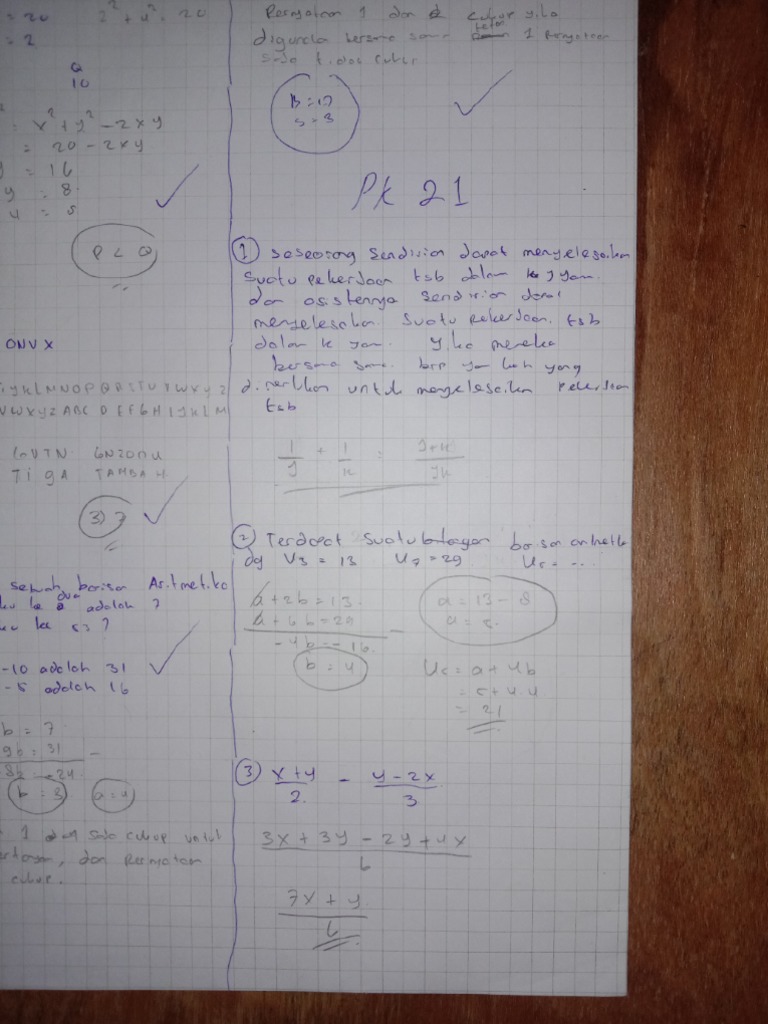 = 20 2² + 4² = 20
= 2
Q
10
= x² + y² - 2xy
= 20 - 2xy
= 16
y = 8
= 5
P < Q
ONVX
JKLMNOPQRSTUVWXYZ
VWXYZABCDEFGHIJKLM
GVTN GNZONU
TIGA TAMBAH
3) 7
sebuah barisan Aritmetika
ku ke dua adalah ?
ke 5 ?
-10 adalah 31
-5 adalah 16
b = 7
9b = 31 -
-8b = -24
b = 3 a = 4
1 saja cukup untuk
dan Pernyataan
cukup.
Pernyataan 1 dan 2 cukup jika
digunakan bersama sama tetapi 1 Pernyataan
saja tidak cukup
B = 17
S = 3
PK 21
① seseorang sendirian dapat menyelesaikan
suatu pekerjaan tsb dalam j jam.
dan asistennya sendirian dapat
menyelesaikan suatu pekerjaan tsb
dalam k jam. Jika mereka
bersama sama. brp jam kah yang
diperlukan untuk menyelesaikan pekerjaan
tsb
1/J + 1/k = J+k/Jk
② Terdapat suatu bilangan barisan aritmetik
dg U₃ = 13 U₇ = 29 U₅ = ....
a + 2b = 13
a + 6b = 29 -
-4b = -16
b = 4
a = 13 - 8
a = 5
U₅ = a + 4b
= 5 + 4.4
= 21
③ x+y/2 - y-2x/3
3x + 3y - 2y + 4x/6
7x + y/6